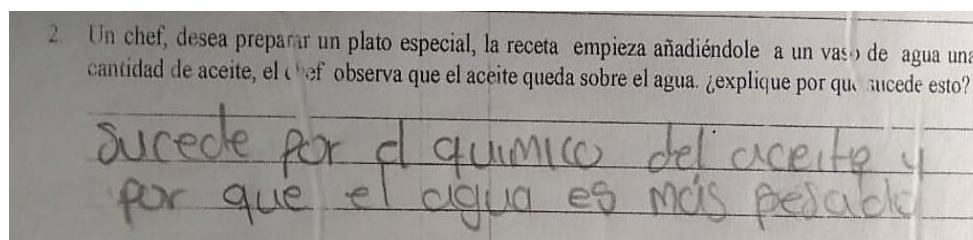 2. Un chef, desea preparar un plato especial, la receta empieza añadiéndole a un vaso de agua una
cantidad de aceite, el chef observa que el aceite queda sobre el agua. ¿explique por que sucede esto?
Sucede por el quimico del aceite y
por que el agua es más pesada